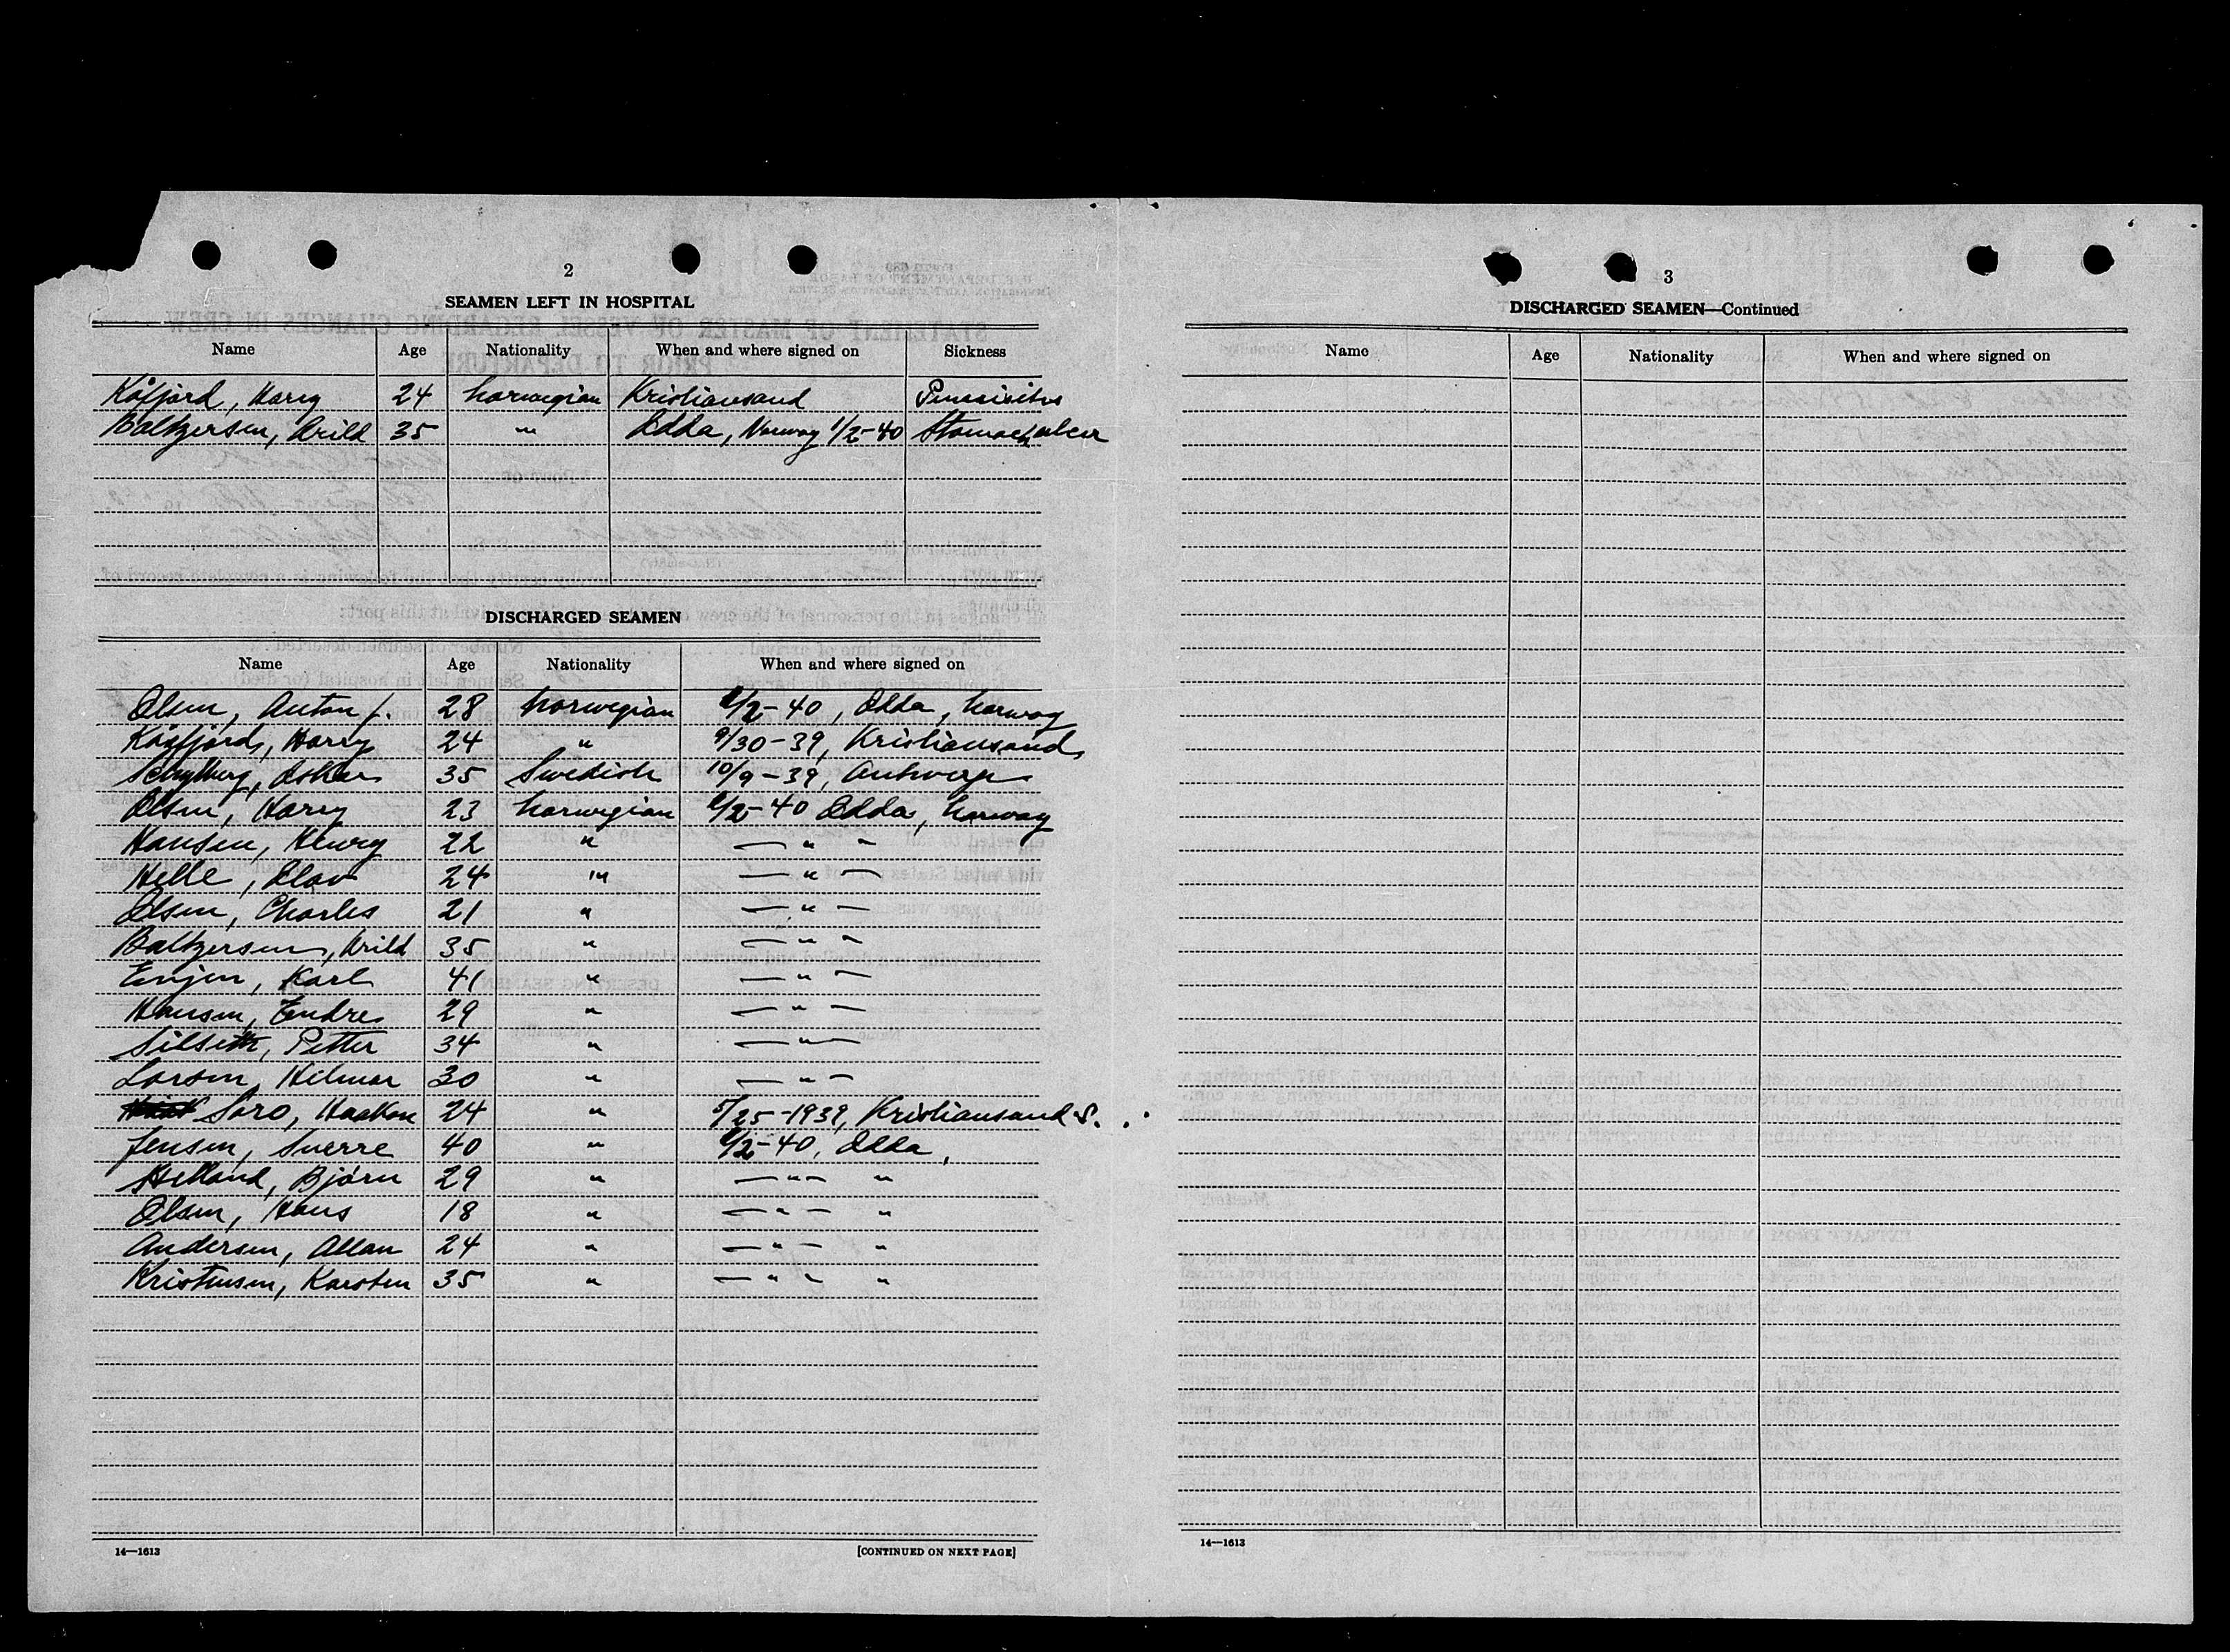 2
SEAMEN LEFT IN HOSPITAL
Name Age Nationality When and where signed on Sickness
Kåfjord, Harry 24 Norwegian Kristiansand
Baltzersen, Arild 35 " Odda, Norway 1/2-40 Stomach ulcer
DISCHARGED SEAMEN
Name Age Nationality When and where signed on
Olsen, Anton J. 28 Norwegian 1/2-40, Odda, Norway
Kåfjord, Harry 24 " 9/30-39, Kristiansand
Oskar 35 Swedish 10/9-39, Antwerp
Olsen, Harry 23 Norwegian 1/2-40 Odda, Norway
Hansen, Henry 22 " — " —
Helle, Olav 24 " — " —
Olsen, Charles 21 " — " —
Baltzersen, Arild 35 " — " —
Evjen, Karl 41 " — " —
Hansen, Endre 29 " — " —
Silseth, Petter 34 " — " —
Larsen, Hilmar 30 " — " —
Soro, Haakon 24 " 5/25-1939, Kristiansand S.
Jensen, Sverre 40 " 1/2-40, Odda,
Helland, Bjørn 29 " — " — "
Olsen, Hans 18 " — " — "
Andersen, Allan 24 " — " — "
Kristensen, Karsten 35 " — " — "
14—1613 [CONTINUED ON NEXT PAGE]
3
DISCHARGED SEAMEN—Continued
Name Age Nationality When and where signed on
14—1613